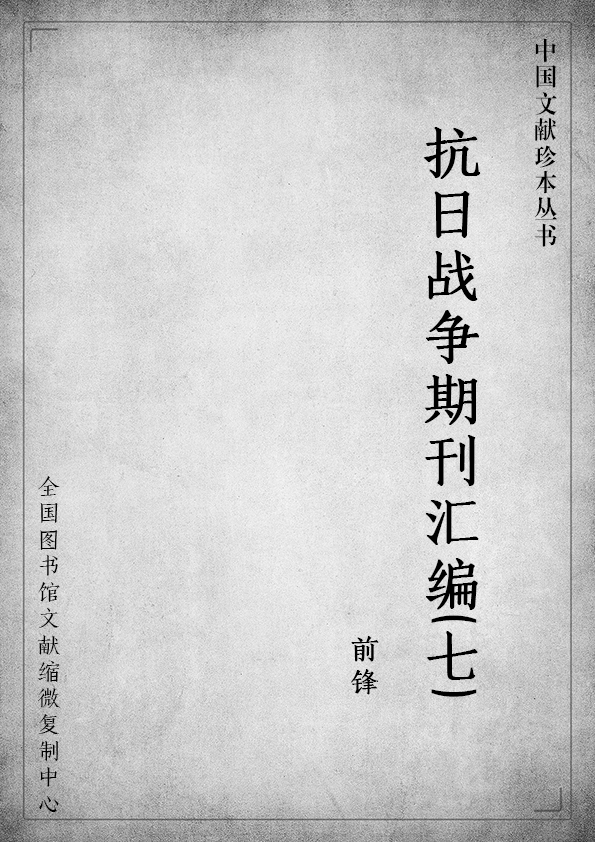 中国文献珍本丛书
抗日战争期刊汇编(七)
前锋
全国图书馆文献缩微复制中心